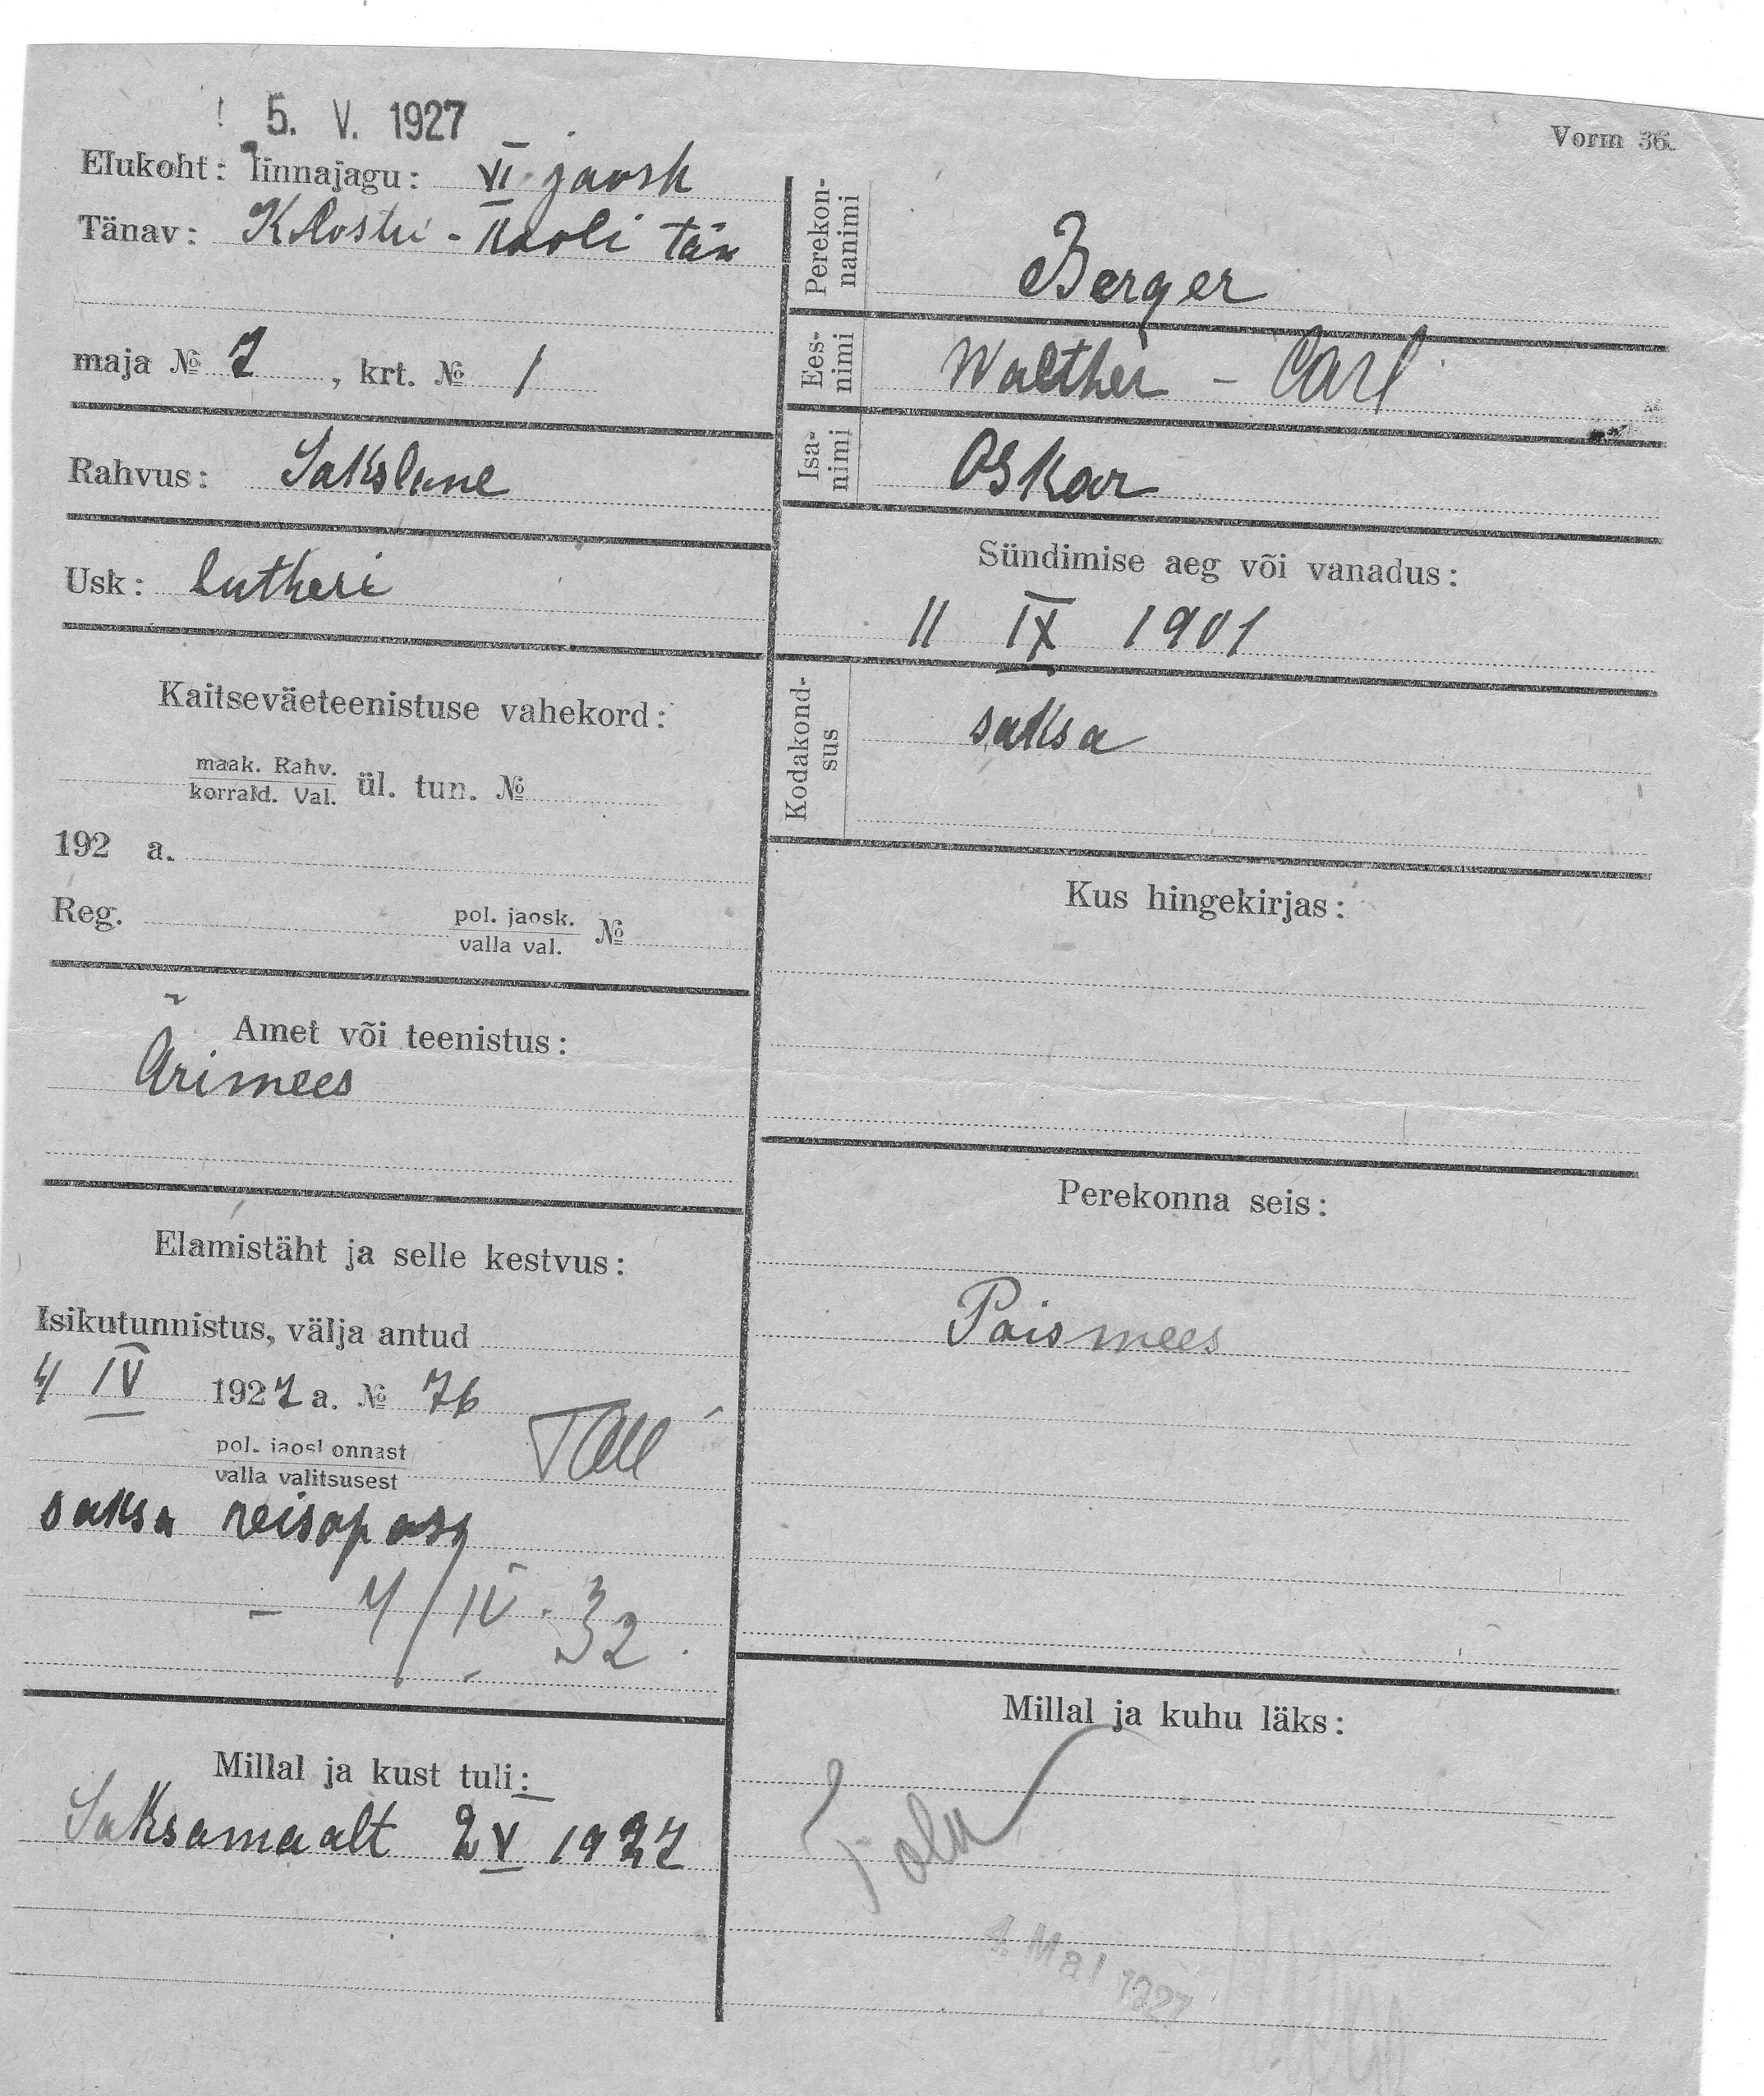 5. V. 1927
Vorm 36.
Elukoht: linnajagu: VI jaosk
Tänav: Klostri - Kooli tän
maja № 7, krt. № 1
Rahvus: Sakslane
Usk: Lutheri
Kaitseväeteenistuse vahekord:
maak. Rahv.
korrald. Val. ül. tun. №
192 a.
Reg. pol. jaosk.
valla val. №
Amet või teenistus:
Ärimees
Elamistäht ja selle kestvus:
Isikutunnistus, välja antud
4 IV 1927 a. № 76
pol. jaoskonnast
valla valitsusest
saksa reisipass
- 4/IV. 32.
Millal ja kust tuli:
Saksamaalt 2 V 1927
Perekon-
nanimi
Berger
Ees-
nimi
Walther - Carl
Isa-
nimi
Oskar
Sündimise aeg või vanadus:
11 IX 1901
Kodakond-
sus
saksa
Kus hingekirjas:
Perekonna seis:
Poismees
Millal ja kuhu läks:
4. Mai 1927